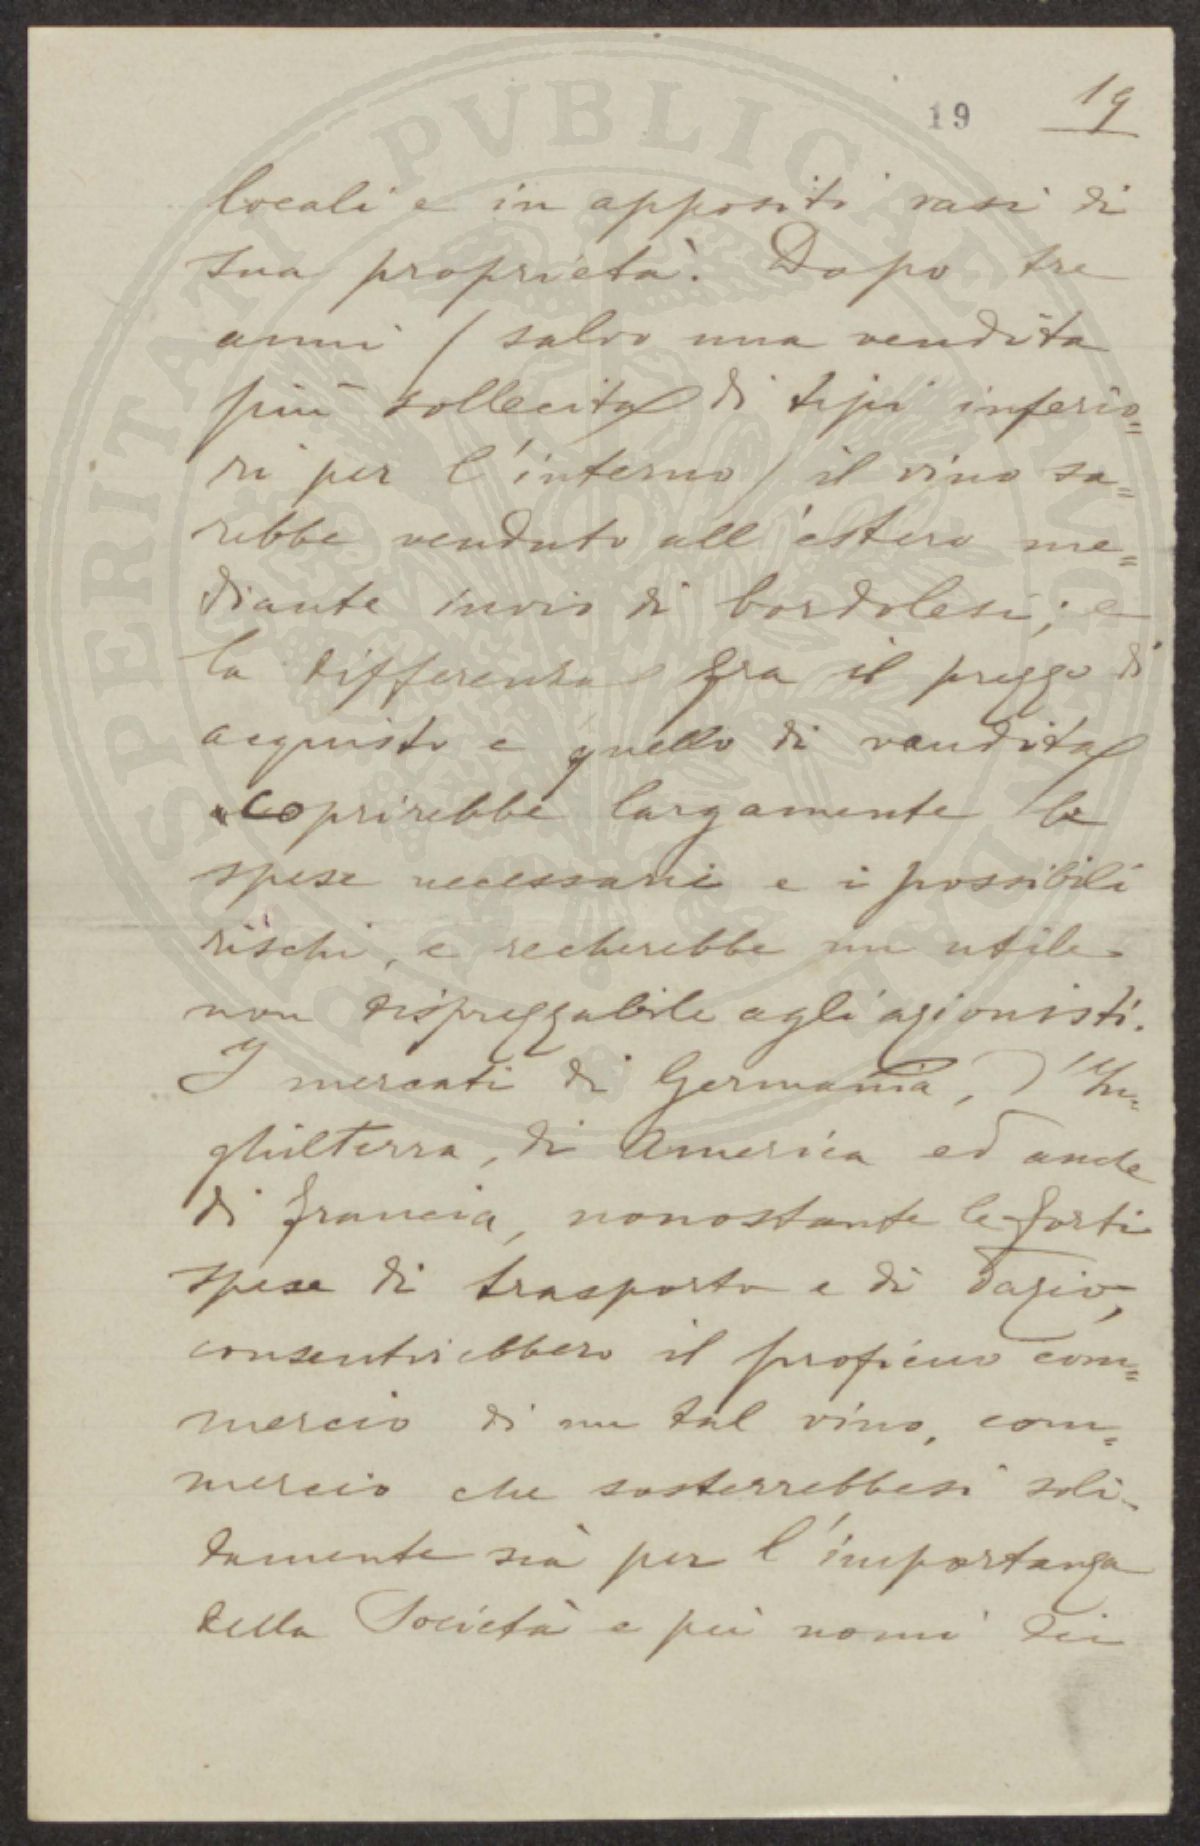 19 19
locali e in appositi vasi di
sua proprietà. Dopo tre
anni (salvo una vendita
più sollecita di tipi inferio=
ri per l'interno) il vino sa=
rebbe venduto all'estero me=
diante invio di bordolesi; e
la differenza fra il prezzo di
acquisto e quello di vendita
coprirebbe largamente le
spese necessarie e i possibili
rischi, e recherebbe un utile
non disprezzabile agli azionisti.
I mercati di Germania, d'In=
ghilterra, di America ed anche
di Francia, nonostante le forti
spese di trasporto e di dazio,
consentirebbero il proficuo com=
mercio di un tal vino, com=
mercio che sosterrebbesi soli-
damente sia per l'importanza
della Società e pei nomi dei
PERITATI PVBLICAE